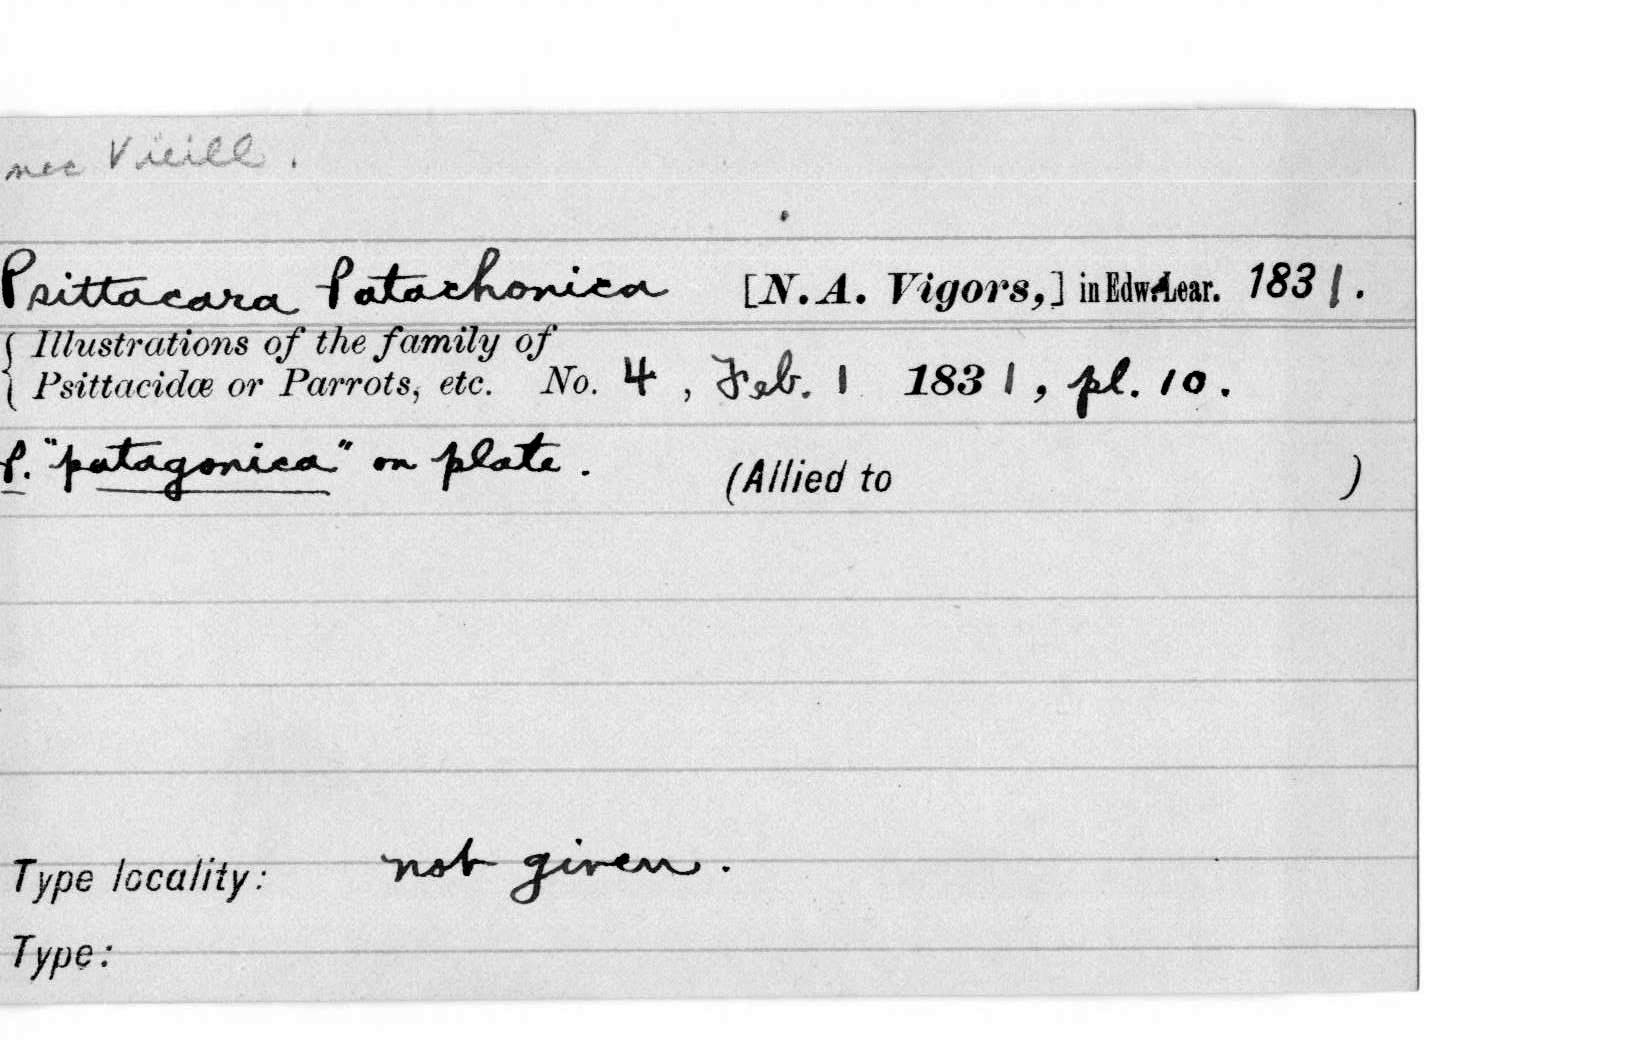 nec Vieill.
Psittacara Patachonica [N. A. Vigors,] in Edw. Lear. 1831.
Illustrations of the family of
Psittacidæ or Parrots, etc. No. 4, Feb. 1 1831, pl. 10.
P. "patagonica" on plate. (Allied to )
Type locality: not given.
Type: